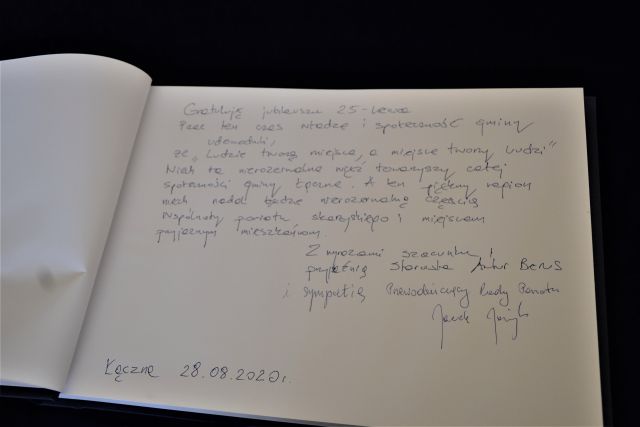 Gratuluję jubileuszu 25-lecia
Przez ten czas władze i społeczność gminy
udowodnili,
że „Ludzie tworzą miejsce, a miejsce tworzy ludzi"
Niech ta nierozerwalna więź towarzyszy całej
społeczności gminy Łączna. A ten piękny region
niech nadal będzie nierozerwalną częścią
wspólnoty powiatu skarżyskiego i miejscem
przyjaznym mieszkańcom.
Z wyrazami szacunku,
przyjaźnią Starosta Artur Berus
i sympatią Przewodniczący Rady Powiatu
Jacek
Łączna 28.08.2020r.